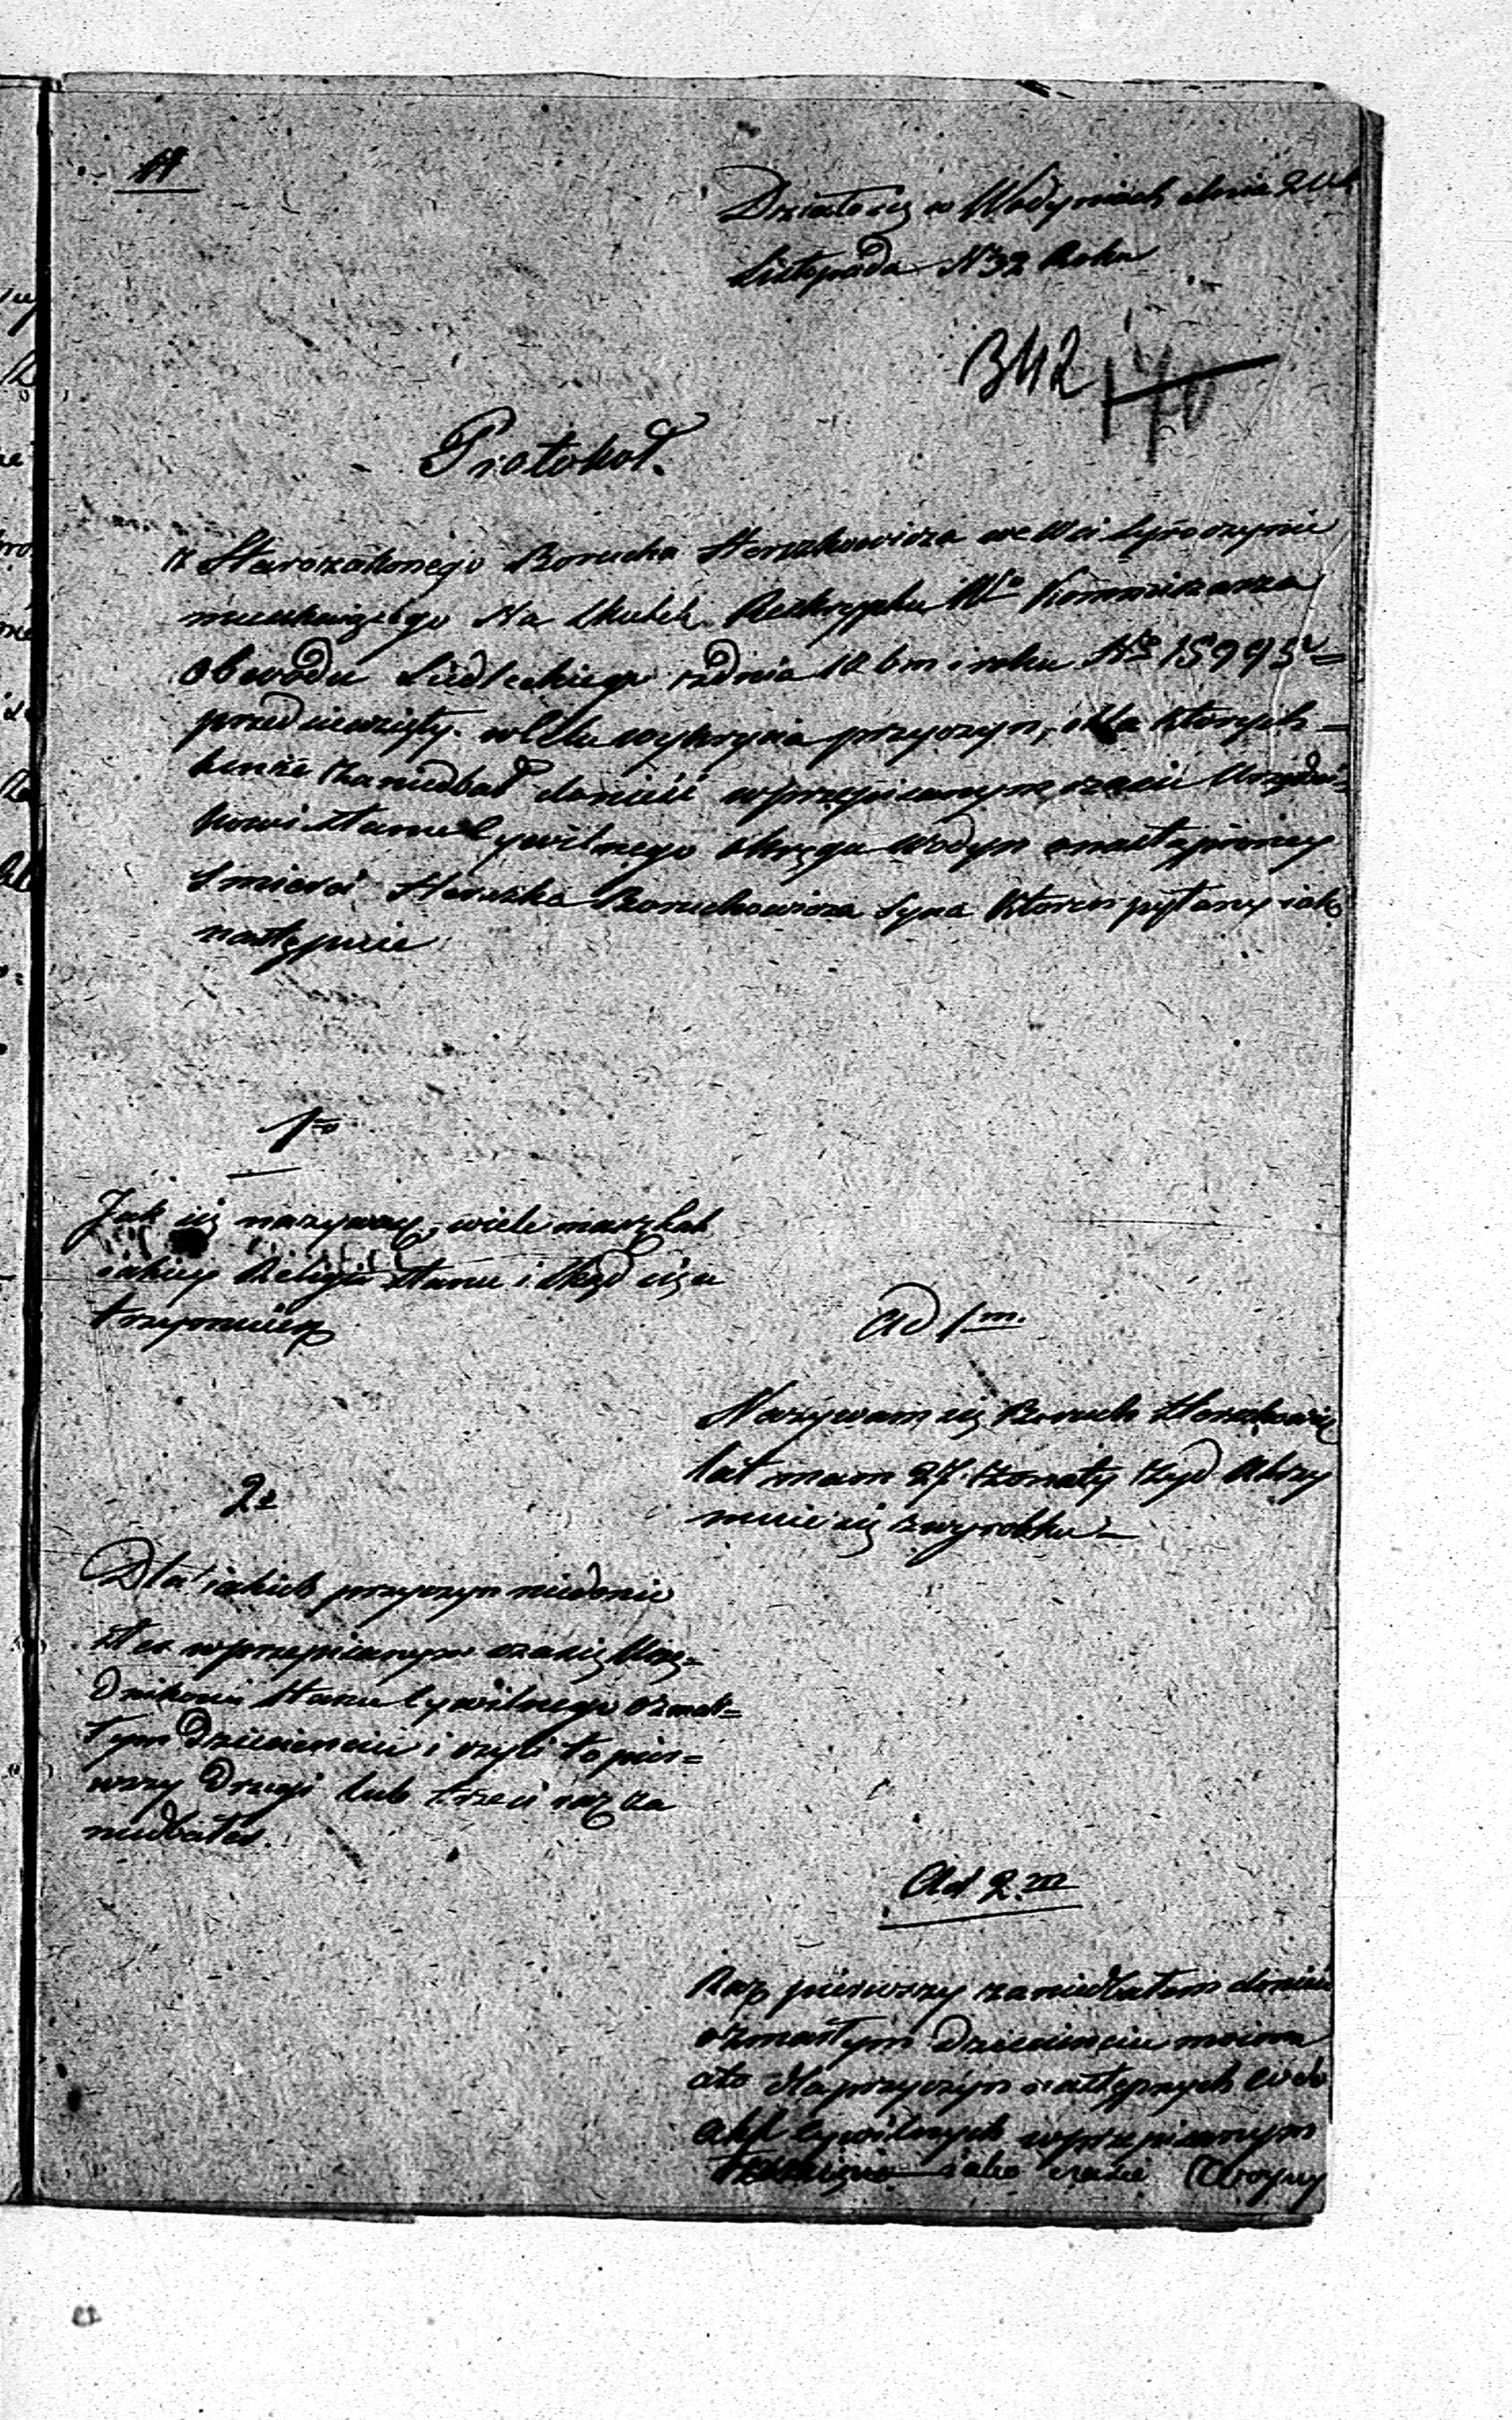 A
Działo się w Wodyniach dnia
Listopada 1832 Roku
342
170
Protokoł.
z Starozakonnego Borucha Herszkowicza we Wsi Seroczynie
mieszkaiącego Na skutek Reskryptu Wgo Kommissarza
Obwodu Siedleckiego z dnia 10 bm i roku No 15993
przedsiewzięty. w Celu wykrycia przyczyn, dla ktorych =
tenże zaniedbał donieść w przepisanym czasie Urzędni=
kowi stanu Cywilnego okręgu Wodyn o nastąpioney
Smierci Herszka Boruchowicza Syna ktoren pytany iak
następuie
1o
Jak się nazywasz, wiele masz lat
iakiey Religii stanu i skąd się u
trzymuiesz
Ad 1m.
Nazywam się Boruch Herszkowicz
lat mam 27. żonaty żyd utrzy
muie się z wyrobku =
2o
Dla iakich przyczyn niedonio
słeś w przepisanym czasie Urzę=
dnikowi stanu Cywilnego o zmar=
łym dziecięciu i czyli to pier=
wszy drugi lub trzeci raz za
niedbałeś.
Ad 2m
Raz pierwszy zaniedbałem donieść
o zmarłym dziecięciu moiem
a to dla przyczyn następnych
Akt Cywilnych w przepisanym
iako czasie